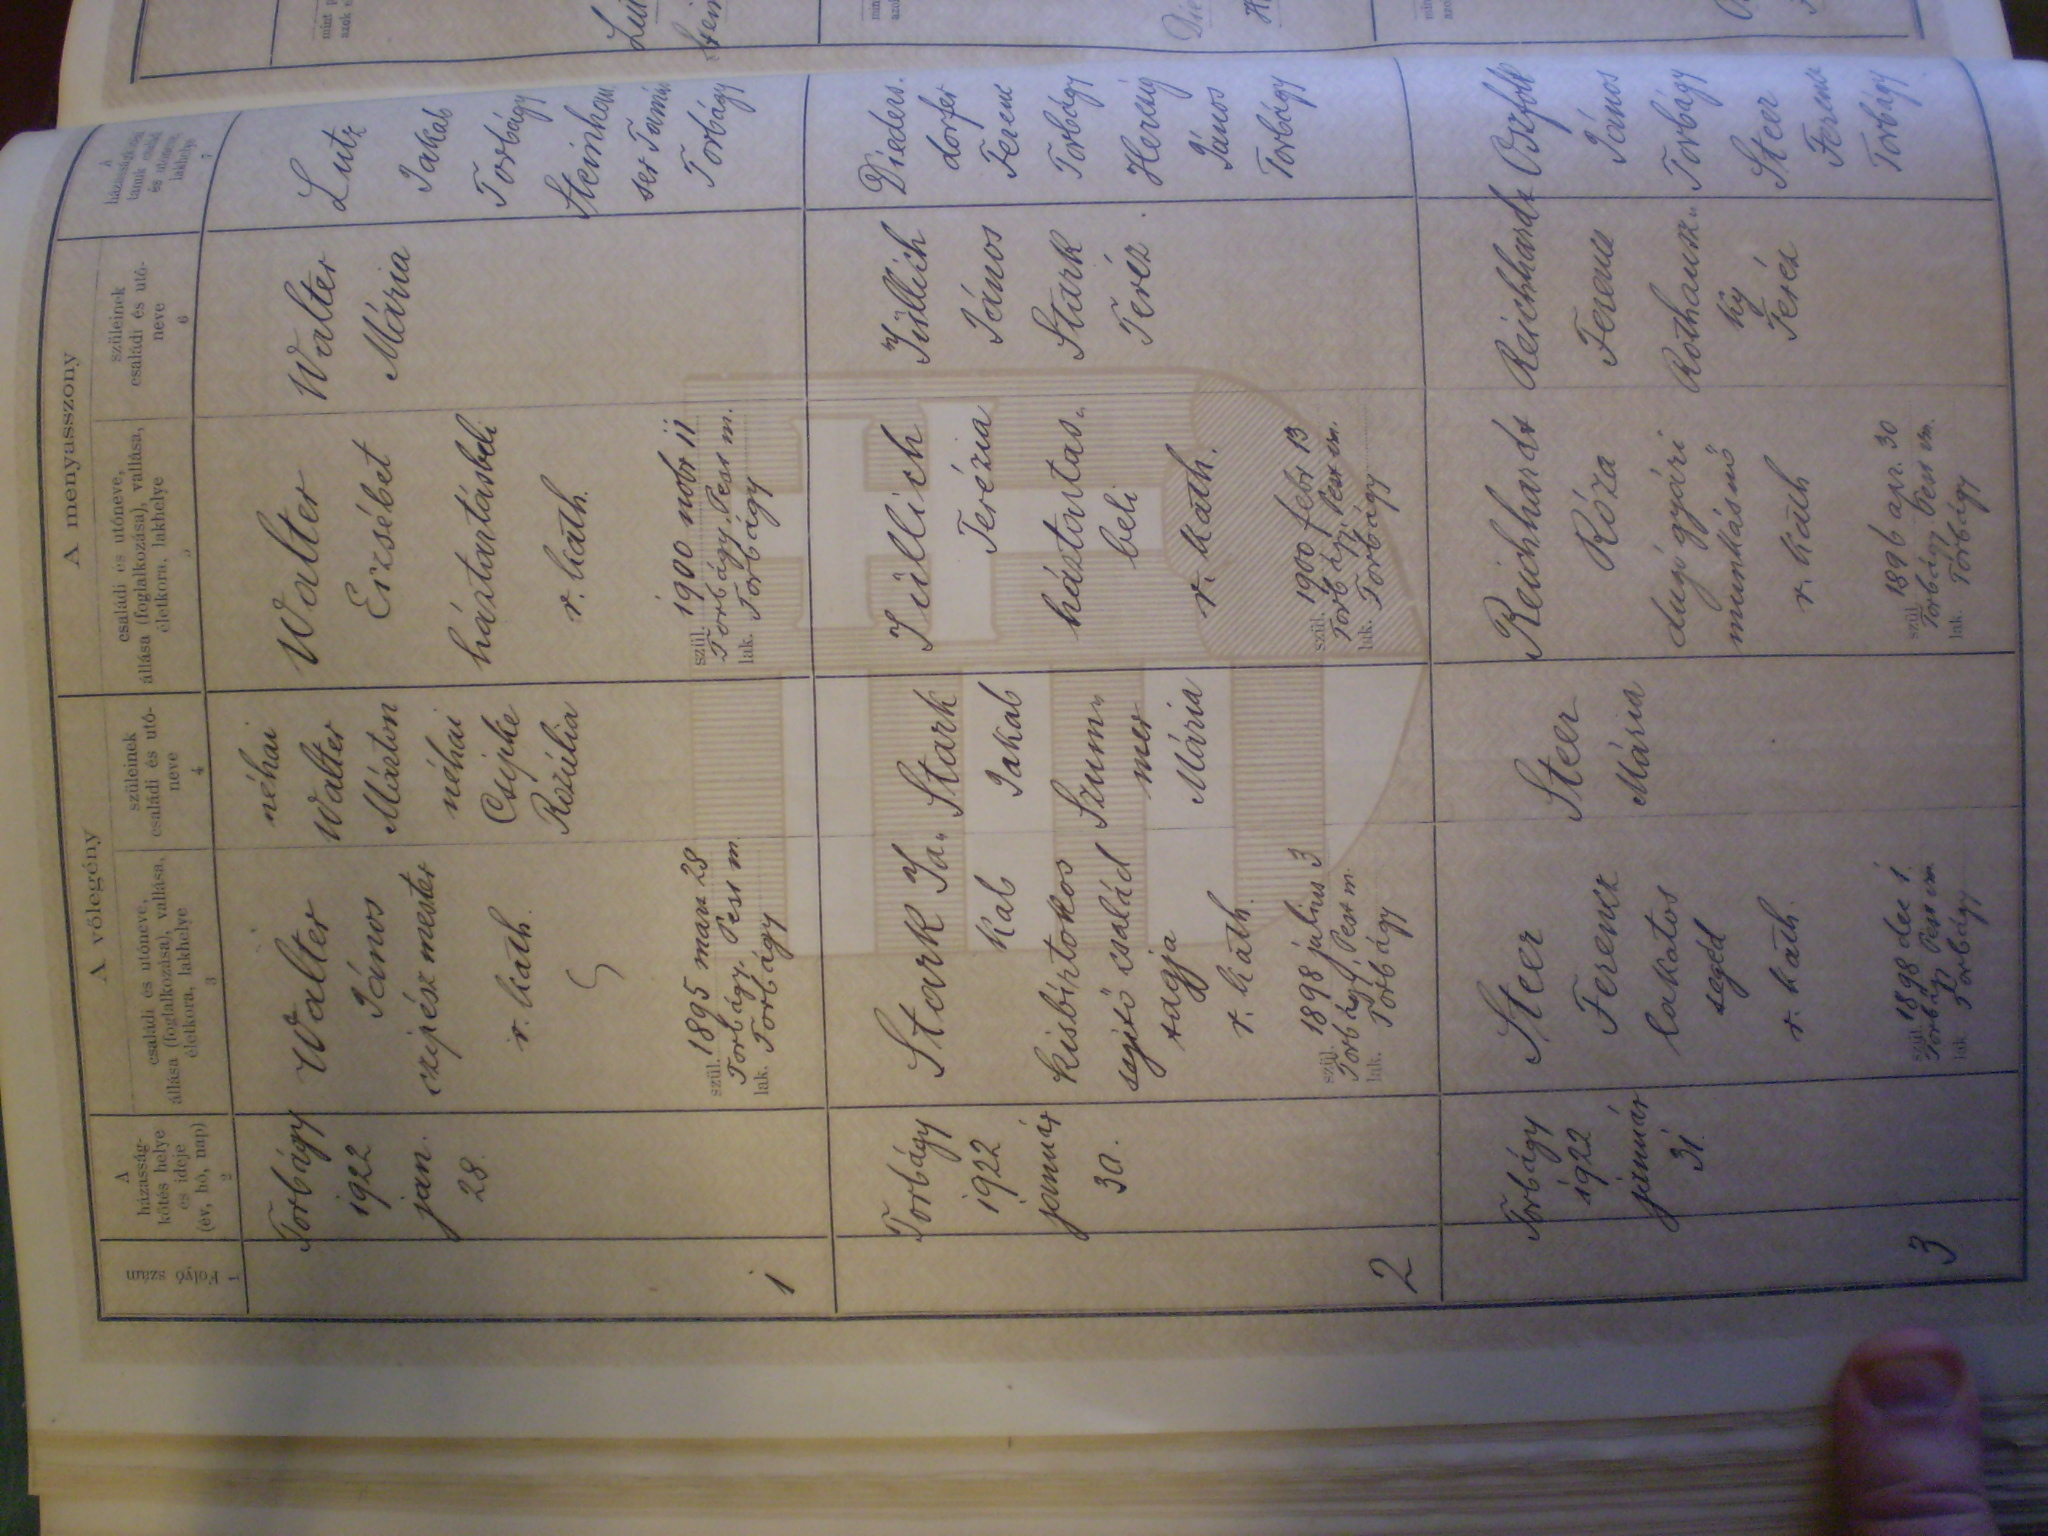 A vőlegény
A menyasszony
Folyó szám
1
A
házasság-
kötés helye
és ideje
(év, hó, nap)
2
családi és utóneve,
állása (foglalkozása), vallása,
életkora, lakhelye
3
szüleinek
családi és utó-
neve
4
családi és utóneve,
állása (foglalkozása), vallása,
életkora, lakhelye
5
szüleinek
családi és utó-
neve
6
A
házasságkötési
tanuk családi
és utóneve,
lakhelye
7
1
Torbágy
1922
jan.
28.
Walter
János
czipész mester
r. kath.
szül. 1895 marz 28
Torbágy. Pest m
lak. Torbágy
néhai
Walter
Márton
néhai
Csipke
Rozúlia
Walter
Erzsébet
háztartásbeli
r. kath.
szül. 1900 nobr 11
Torbágy. Pest m.
lak. Torbágy
Walter
Mária
Lutz
Jakab
Torbágy
Steinhau
ser Tamás
Torbágy
2
Torbágy
1922
január
30.
Stark Ja„
kab
kisbirtokos
segítő család
tagja
r. kath.
szül. 1898 július 3
Torbágy. Pest m.
lak. Torbágy
Stark
Jakab
Szum„
mer
Mária
Jüllich
Terézia
háztartás„
beli
r. kath.
szül. 1900 febr 13
Torbágy Pest vm.
lak. Torbágy
Jüllich
János
Stark
Teréz.
Dieders.
dorfer
Ferenc
Torbágy
Hernig
János
Torbágy
3
Torbágy
1922
január
31.
Steer
Ferencz
lakatos
segéd
r. kath.
szül. 1898 dec 1.
Torbágy Pest vm
lak Torbágy
Steer
Mária
Reichhardt
Róza
dugó gyári
munkásnő
r. kath
szül. 1896 apr. 30
Torbágy Pest vm.
lak Torbágy
Reichhardt
Ferenc
Rothausz„
ky
Teréz
János
Torbágy
Steer
Ferenc
Torbágy